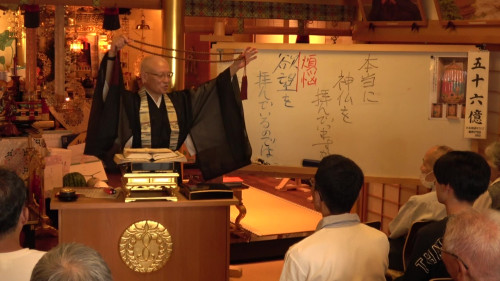 本当に
神仏を
拝んでいますか
煩悩
欲望を
拝んでいるのでは
五十六億